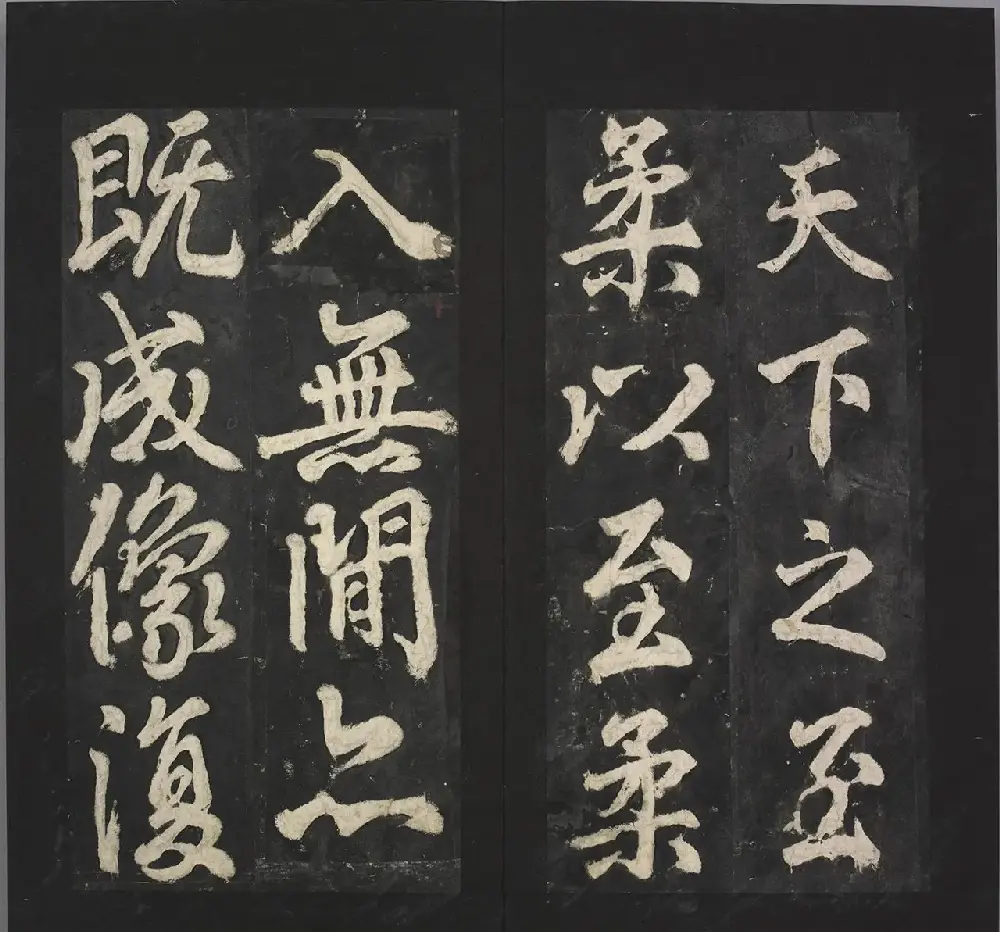 天下之至
柔以至柔
入無閒亦
既成像復